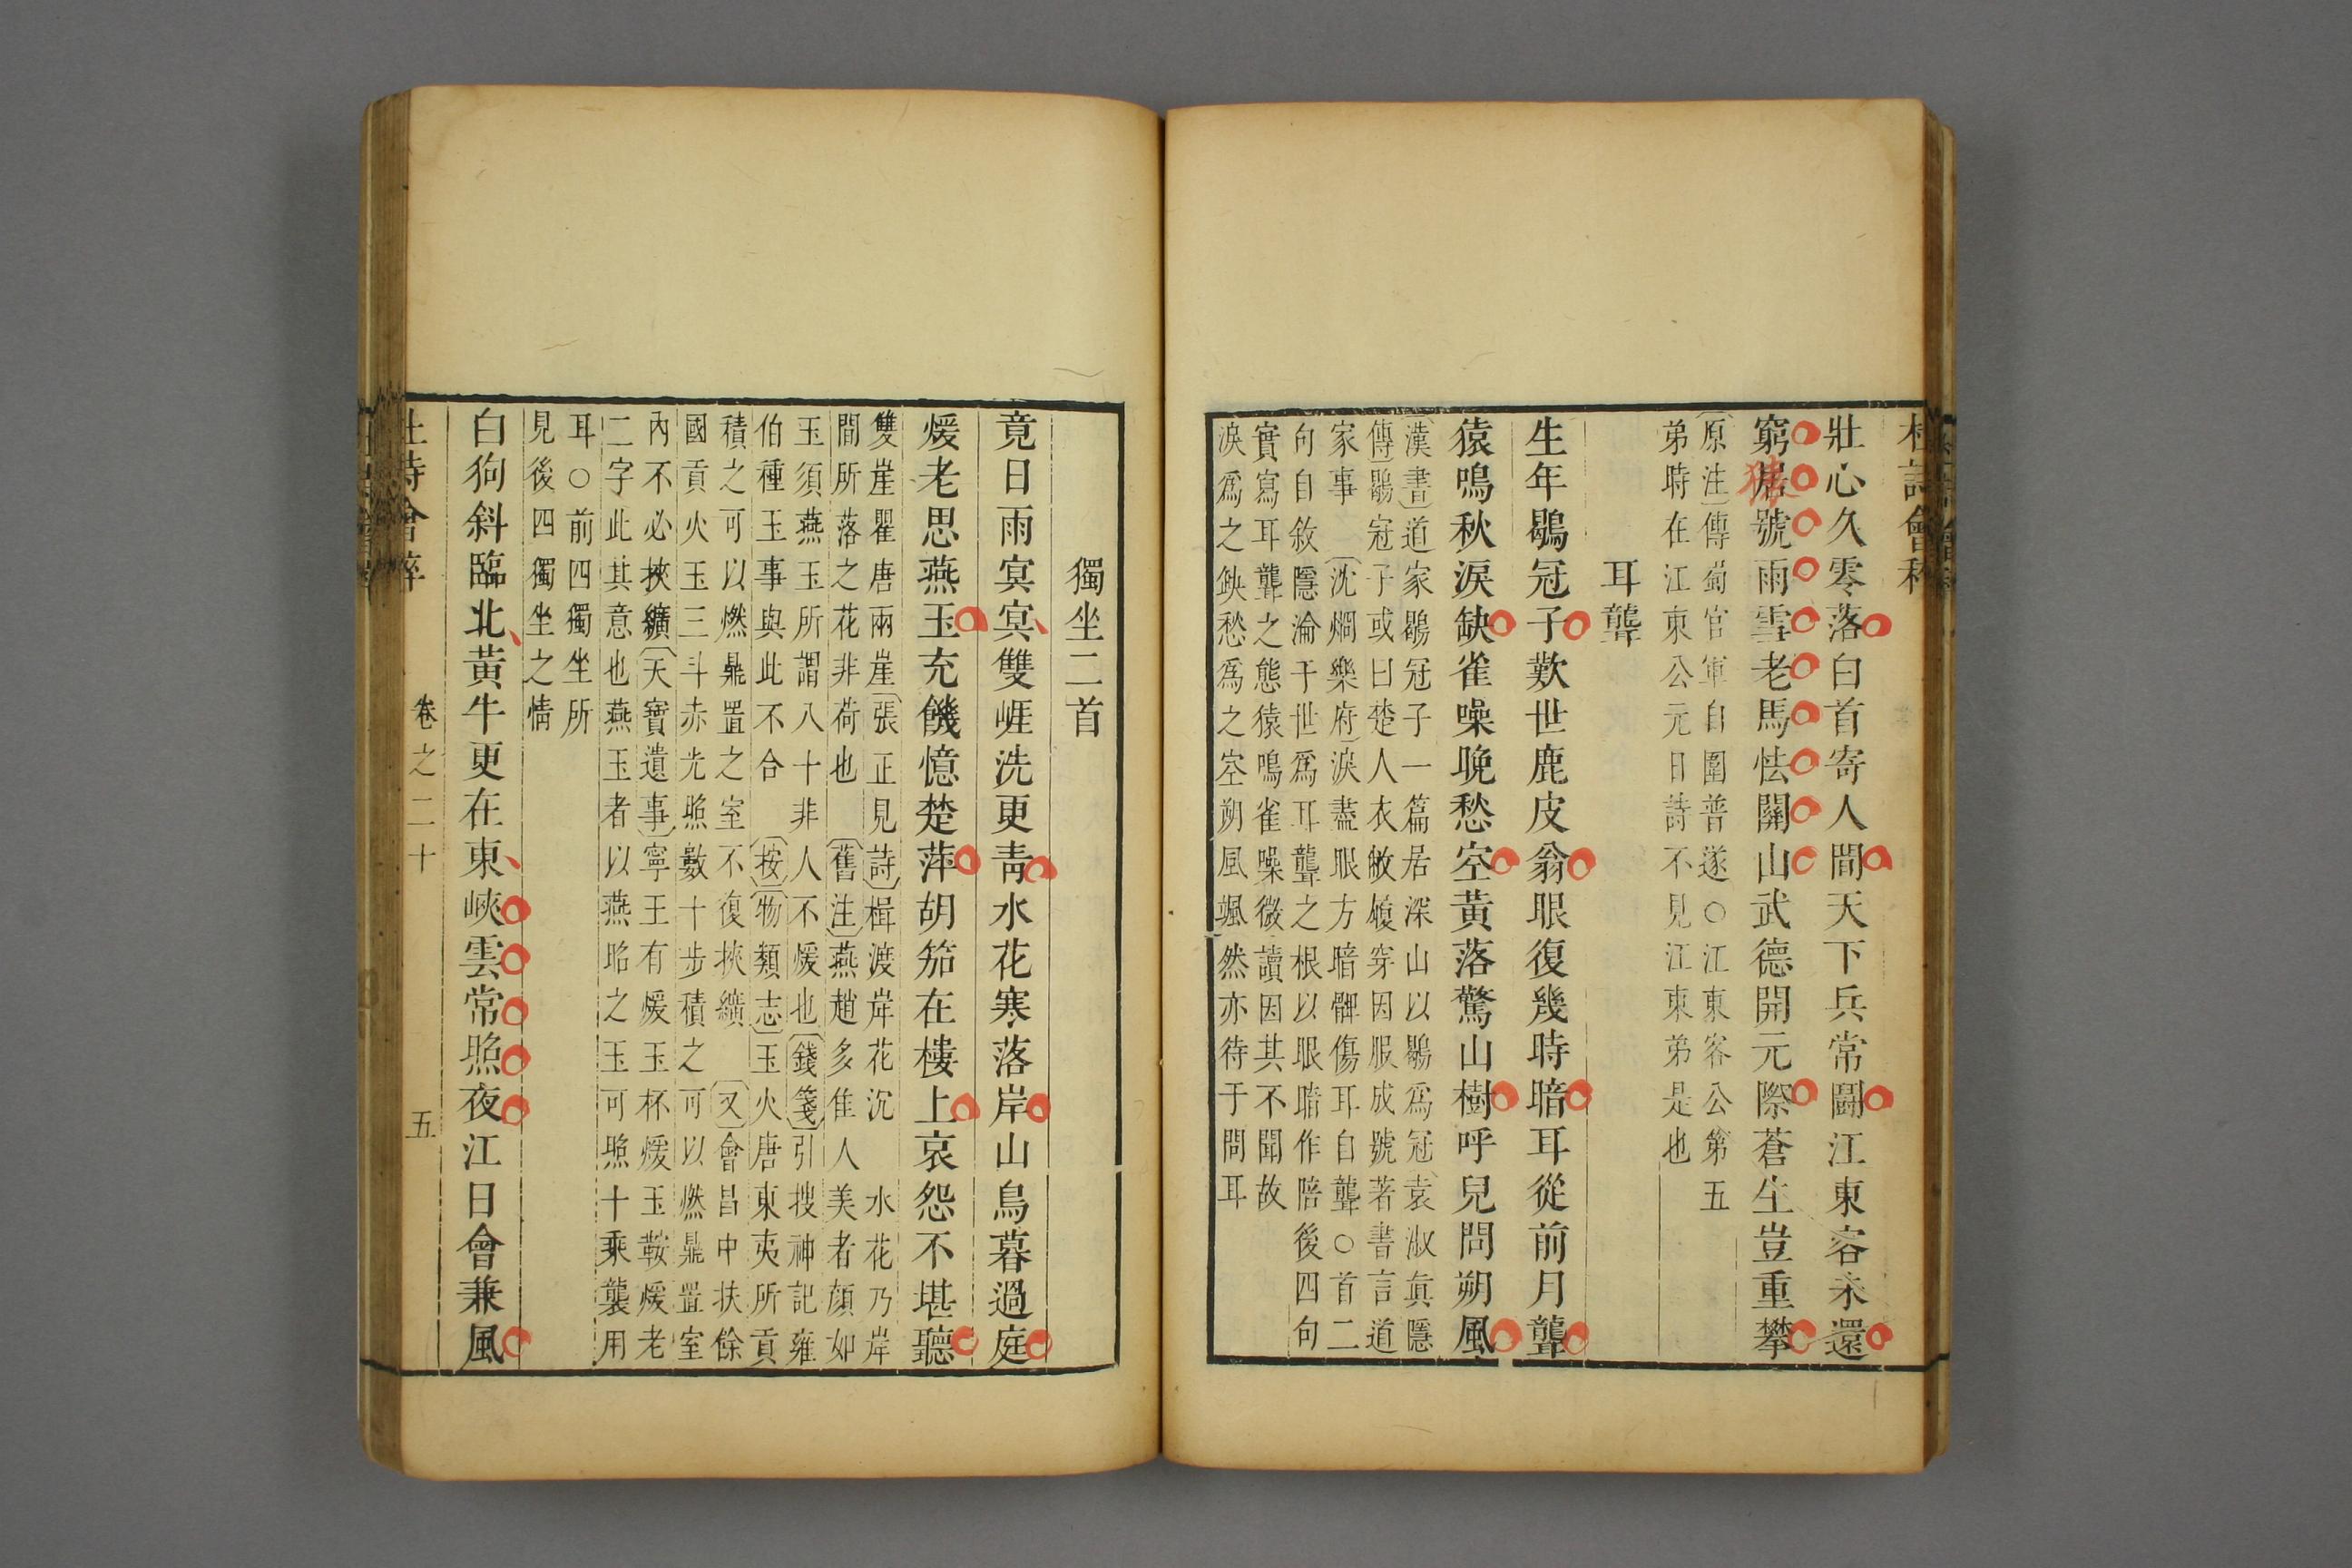 壯心久零落白首寄人間天下兵常鬬江東客未還
窮猿號雨雪老馬怯關山武德開元際蒼生豈重攀
原注傳蜀官軍自圍普遂○江東客公第五
弟時在江東公元日詩不見江東弟是也
耳聾
生年鶡冠子歎世鹿皮翁眼復幾時暗耳從前月聾
猿鳴秋淚缺雀噪晚愁空黃落驚山樹呼兒問朔風
漢書道家鶡冠子一篇居深山以鶡爲冠袁淑眞隱
傳鶡冠子或曰楚人衣敝履穿因服成號著書言道
家事 沈烱樂府淚盡眼方暗髀傷耳自聾○首二
句自敘隱淪于世爲耳聾之根以眼暗作陪後四句
實寫耳聾之態猿鳴雀噪微讀因其不聞故
淚爲之缺愁爲之空朔風颯然亦待于問耳
獨坐二首
竟日雨冥冥雙崖洗更靑水花寒落岸山鳥暮過庭
煖老思燕玉充饑憶楚萍胡笳在樓上哀怨不堪聽
雙崖瞿唐兩崖張正見詩楫渡岸花沉 水花乃岸
間所落之花非荷也 舊注燕趙多佳人美者顔如
玉須燕玉所謂八十非人不煖也錢箋引搜神記雍
伯種玉事與此不合 按物類志玉火唐東夷所貢
積之可以燃鼎置之室不復挾纊 又會昌中扶餘
國貢火玉三斗赤光照數十步積之可以燃鼎置室
內不必挾纊天寶遺事寧王有煖玉杯煖玉鞍煖老
二字此其意也燕玉者以燕昭之玉可照十乘襲用
耳○前四獨坐所
見後四獨坐之情
白狗斜臨北黃牛更在東峽雲常照夜江日會兼風
杜詩會稡 卷之二十 五